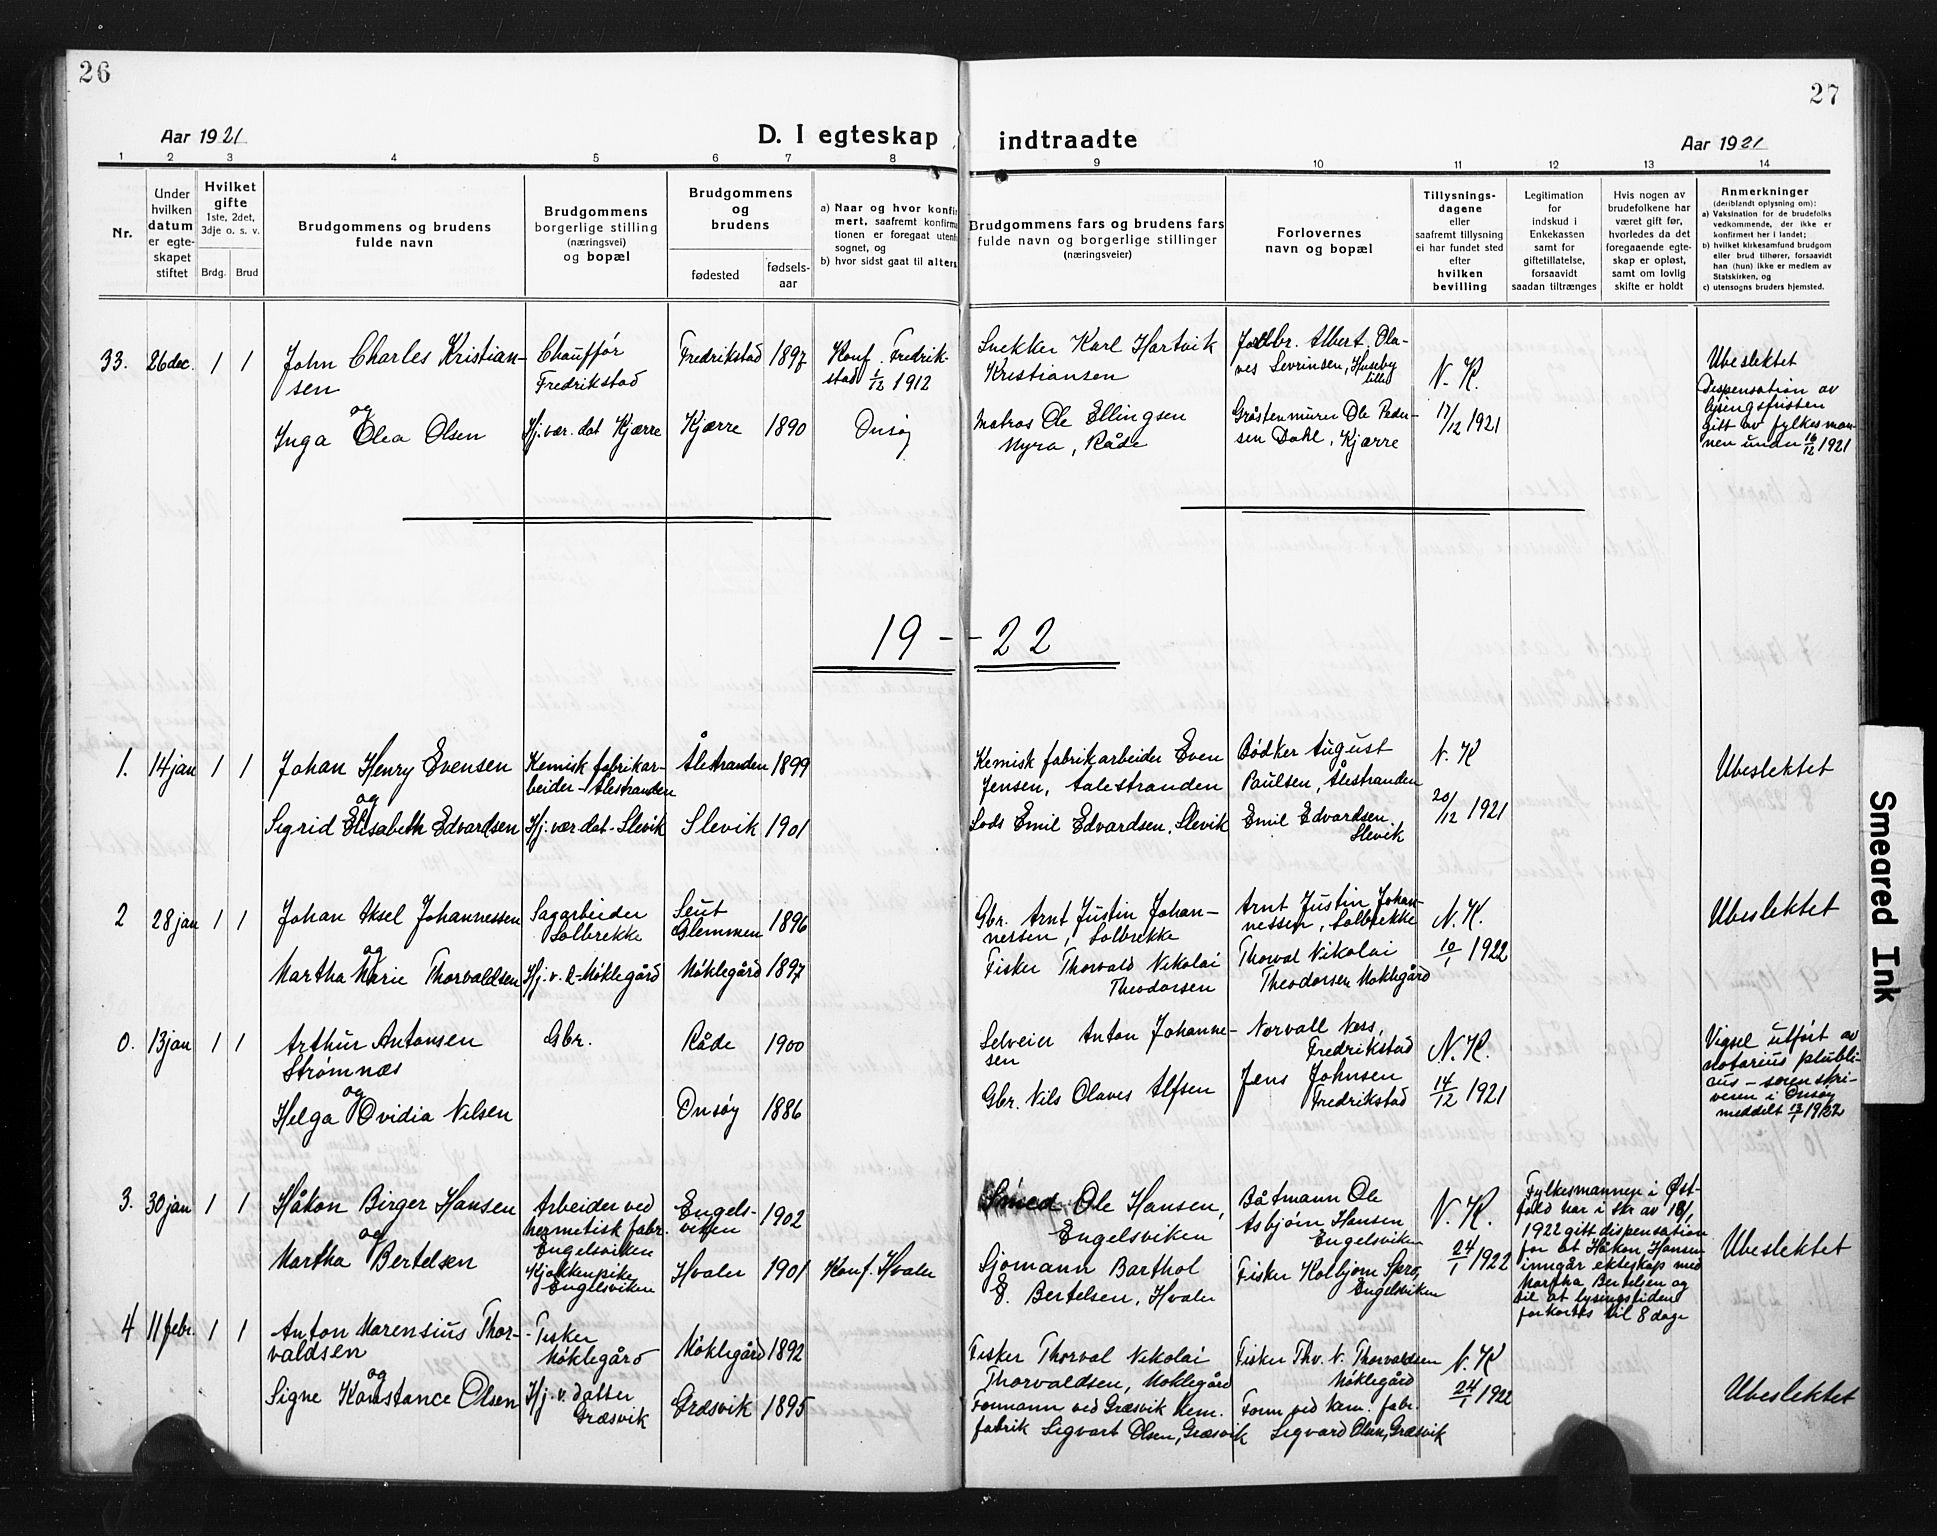 26
27
Aar 1921
D. I egteskap indtraadte
Aar 1921
1 2 3 4 5 6 7 8 9 10 11 12 13 14
Nr.
Under
hvilken
datum
er egte-
skapet
stiftet
Hvilket
gifte
1ste, 2det,
3dje o. s. v.
Brdg. Brud
Brudgommens og brudens
fulde navn
Brudgommens
borgerlige stilling
(næringsvei)
og bopæl
Brudgommens
og
brudens
fødested
fødsels-
aar
a) Naar og hvor konfir
mert, saafremt konfirma
tionen er foregaat utenfo
sognet, og
b) hvor sidst gaat til alters
Brudgommens fars og brudens fars
fulde navn og borgerlige stillinger
(næringsveier)
Forlovernes
navn og bopæl
Tillysnings-
dagene
eller
saafremt tillysning
ei har fundet sted
efter
hvilken
bevilling
Legitimation
for
indskud i
Enkekassen
samt for
giftetillatelse,
forsaavidt
saadan tiltrænges
Hvis nogen av
brudefolkene har
været gift før,
hvorledes da det
foregaaende egte-
skap er opløst,
samt om lovlig
skifte er holdt
Anmerkninger
(deriblandt oplysning om):
a) Vaksination for de brudefolks
vedkommende, der ikke er
konfirmert her i landet;
b) hvilket kirkesamfund brudgom
eller brud tilhører, forsaavidt
han (hun) ikke er medlem av
Statskirken, og
c) utensogns bruders hjemsted.
33. 26 dec. 1 1
John Charles Kristian-
sen
og
Inga Olea Olsen
Chauffør
Fredrikstad
Hj. vær. dat Kjærre
Fredrikstad 1897
Kjærre 1890
Konf. Fredrik-
stad 1/12 1912
Onsøy
Snekker Karl Hartvik
Kristiansen
Matros Ole Ellingsen
Myra, Råde
Albert Ola-
ves Sevrinsen, Huseby
lille
Gråstenmurer Ole Peder-
sen Dahl, Kjærre
N. K.
17/12 1921
Ubeslektet
Dispensation av
lysingsfristen
gitt av fylkesman-
nen under 16/12 1921
19 - - 22
1. 14 jan 1 1
Johan Henry Evensen
og
Sigrid Elisabeth Edvardsen
Kemisk fabrikar-
beider - Ålestranden
Hj. vær. dat - Slevik
Ålestranden 1899
Slevik 1901
Kemisk fabrikarbeider Even
Jensen, Aalestranden
Lods Emil Edvardsen, Slevik
Bødker August
Paulsen, Ålestranden
Emil Edvardsen
Slevik
N. K
20/12 1921
Ubeslektet
2 28 jan 1 1
Johan Aksel Johannessen
og
Martha Marie Thorvaldsen
Sagarbeider
Solbrekke
Hj. v. d - Møklegård
Seut
Glemmen 1896
Møklegård 1897
Gbr. Arnt Justin Johan-
nessen, Solbrekke
Fisker Thorvald Nikolai
Theodorsen
Arnt Justin Johan-
nessen, Solbrekke
Thorval Nikolai
Theodorsen Møklegård
N. K.
10/1 1922
Ubeslektet
0. 13 jan 1 1
Arthur Antonsen
Strømnæs
og
Helga Ovidia Nilsen
Gbr.
Råde 1900
Onsøy 1886
Selveier Anton Johanne-
sen
Gbr. Nils Olaves Alfsen
Norvall Næss,
Fredrikstad
Jens Johnsen
Fredrikstad
N. K.
14/12 1921
Vigsel utført av
notarius plubli-
cus - sorenskri-
veren i Onsøy
meddelt 13/1 1922
3. 30 jan 1 1
Håkon Birger Hansen
og
Martha Bertelsen
Arbeider ved
hermetisk fabr.
Engelsviken
Kjøkkenpike
Engelsviken
Engels-
viken 1902
Hvaler 1901
Konf. Hvaler
Smed Ole Hansen,
Engelsviken
Sjømann Barthol
E. Bertelsen, Hvaler
Båtmann Ole
Asbjørn Hansen
Engelsviken
Fisker Kolbjørn Spro,
Engelsviken
N. K.
24/1 1922
Fylkesmannen i Øst-
fold har i skr av 18/1
1922 gitt dispensation
for at Håkon Hansen
inngår ekteskap med
Martha Bertelsen og
til at lysingstiden
forkortes til 8 dage
Ubeslektet
4 11 febr. 1 1
Anton Marensius Thor-
valdsen
og
Signe Konstance Olsen
Fisker
Møklegård
Hj. v. datter
Græsvik
Møklegård 1892
Græsvik 1895
Fisker Thorval Nikolai
Thorvaldsen, Møklegård
Formann ved Græsvik kem.
fabrik Sigvart Olsen, Græsvik
Fisker Thv. N. Thorvaldsen
Møklegård
Form ved kem. fabr.
Sigvard Olsen, Græsvik
N. K
24/1 1922
Ubeslektet
Smeared Ink